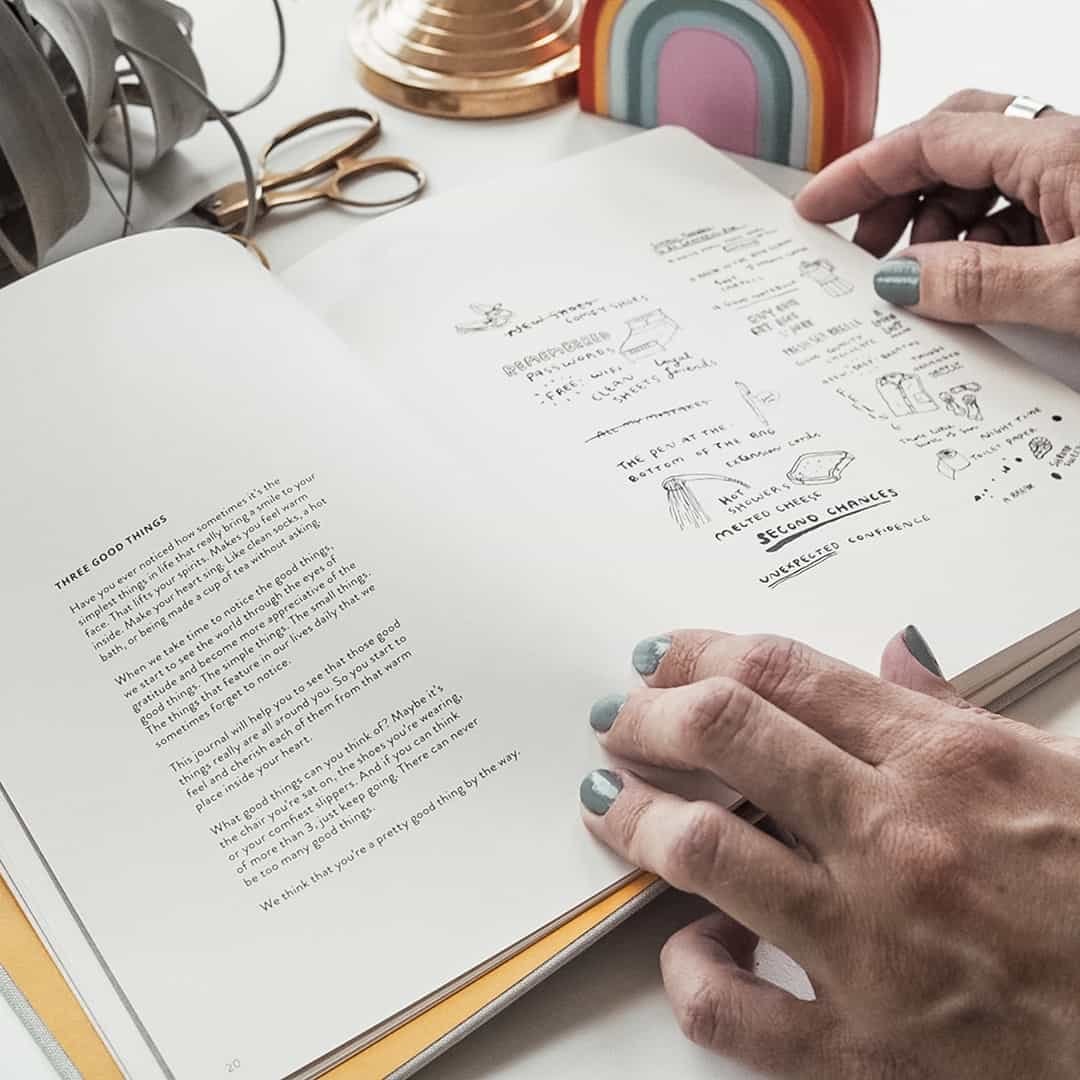 THREE GOOD THINGS
Have you ever noticed how sometimes it's the
simplest things in life that really bring a smile to your
face. That lifts your spirits. Makes you feel warm
inside. Make your heart sing. Like clean socks, a hot
bath, or being made a cup of tea without asking.
When we take time to notice the good things,
we start to see the world through the eyes of
gratitude and become more appreciative of the
good things. The simple things. The small things.
The things that feature in our lives daily that we
sometimes forget to notice.
This journal will help you to see that those good
things really are all around you. So you start to
feel and cherish each of them from that warm
place inside your heart.
What good things can you think of? Maybe it's
the chair you're sat on, the shoes you're wearing,
or your comfiest slippers. And if you can think
of more than 3, just keep going. There can never
be too many good things.
We think that you're a pretty good thing by the way.
20
NEW SHOES
COMFY SHOES
REMEMBERED
PASSWORDS
FREE WIFI
loyal
friends
CLEAN
SHEETS
All my mistakes
THE PEN AT THE
BOTTOM OF THE BAG
Extension cords
HOT
SHOWERS
MELTED CHEESE
SECOND CHANCES
UNEXPECTED CONFIDENCE
NIGHT TIME
TOILET PAPER
A BREAK